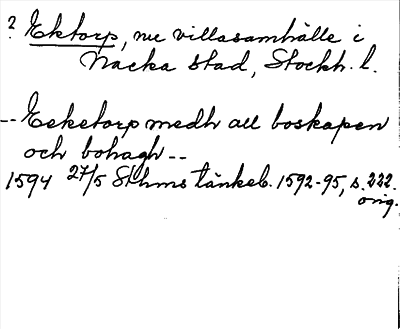 ? Ektorp, nu villasamhälle i
Nacka stad, Stockh. l.
-- Eeketorp medh all boskapen
och bohagh --
1594 27/5 Sthms tänkeb. 1592-95, s. 222.
orig.